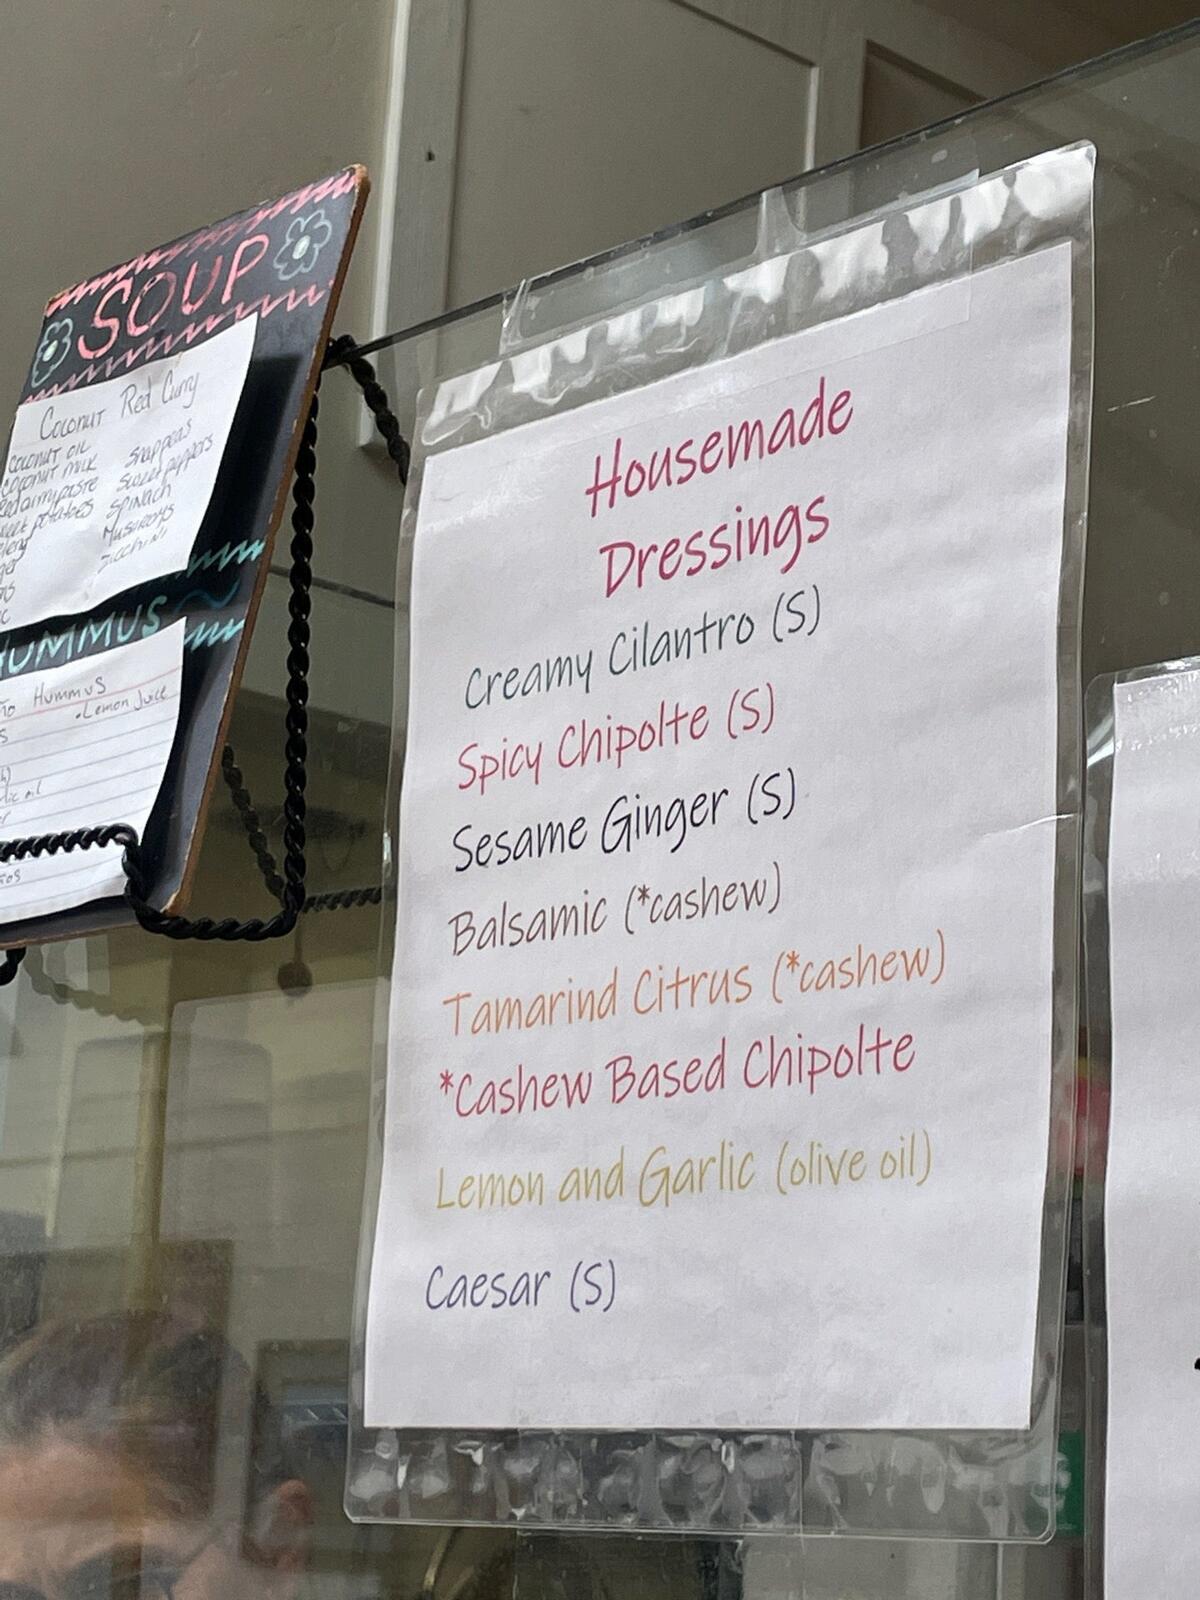 SOUP
Coconut Red Curry
COCONUT OIL
COCONUT MILK
Snap peas
Sweet peppers
Spinach
HUMMUS
Hummus
•Lemon Juice
Housemade
Dressings
Creamy Cilantro (S)
Spicy Chipolte (S)
Sesame Ginger (S)
Balsamic (*cashew)
Tamarind Citrus (*cashew)
*Cashew Based Chipolte
Lemon and Garlic (olive oil)
Caesar (S)